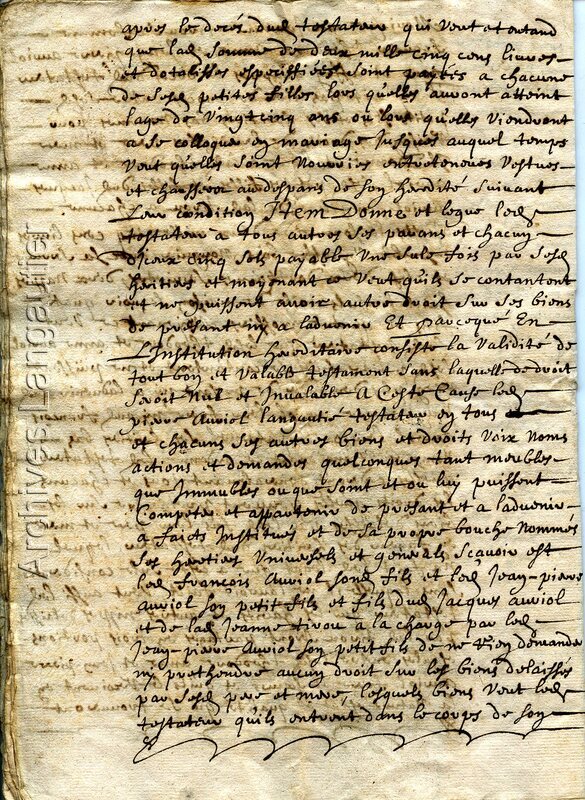 apres le deces dud testateur qui veut et entand
que lad somme de deux mille cinq cens livres
et dotalisses especiffiées soint payées a chacune
de sesd petites filles lors quelles auront atteint
lage de vingtcinq ans ou lors qu'elles viendront
a se colloquer en mariage jusques auquel temps
veut qu'elles soint nourries entretenues vestues
et chaussees aux despans de son heredite suivant
leur condition Item Donne et legue led
testateur a tous autres ses parans et chacun
d'iceux cinq sols payable une sule fois par sesd
heritiers et moyenant ce veut qu'ils se contantent
et ne puissent avoir autre droit sur ses biens
de presant ny a ladvenir Et parceque En
L'Institution hereditaire consiste la validité de
tout bon et valable testament sans laquelle de droit
seroit nul et Invalable A Ceste Cause led
pierre Auriol langautié testateur en tous
et chacuns ses autres biens et droits voix noms
actions et demandes quelconques tant meubles
que Immubles ou que soint et ou luy puissent
Competer et appartenir de presant et a ladvenir
a faicts Institués et de sa propre bouche nommés
ses heretiers universels et generals sçavoir est
led françois Auriol sond fils et led Jean-pierre
auriol son petit fils et fils dud Jacques auriol
et de lad Jeanne tirou à la charge par led
Jean-pierre Auriol son petit fils de ne rien demander
ny prethendre aucun droit sur les biens delaissés
par sesd pere et mere, lesquels biens veut led
testateur qu'ils entrent dans le corps de son
Archives Langautier